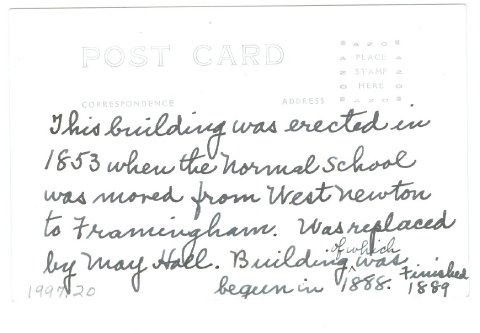 POST CARD
AZO
PLACE
STAMP
HERE
AZO
CORRESPONDENCE
ADDRESS
This building was erected in
1853 when the Normal School
was moved from West Newton
to Framingham. Was replaced
by May Hall. Building of which was
begun in 1888. Finished
1889
1997.20